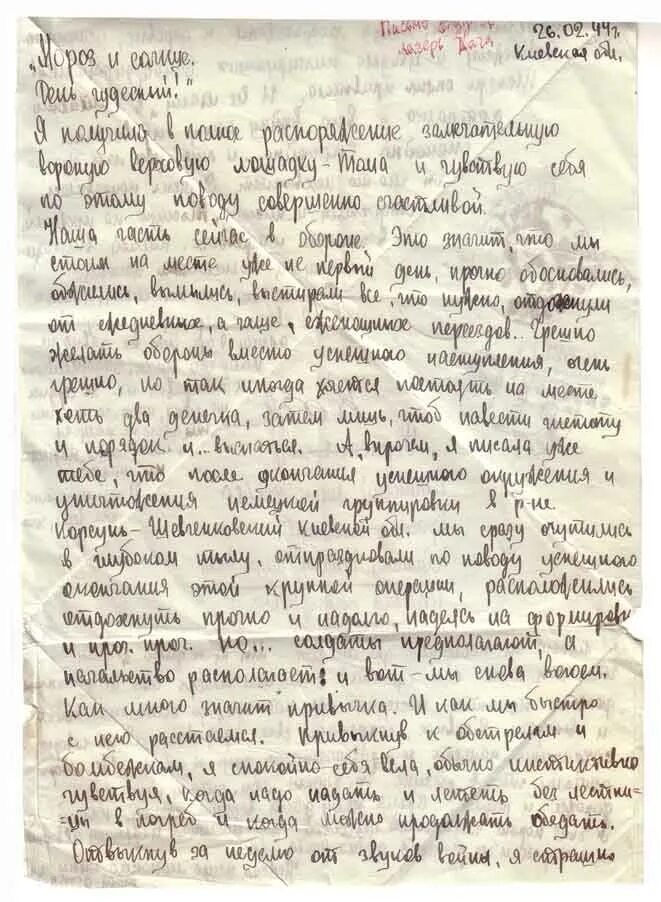 Письмо
лазерь
26.02.44г.
Киевская обл.
„Мороз и солнце.
День чудесный!"
Я получила в полное распоряжение замечательную
вороную верховую лошадку - Тома и чувствую себя
по этому поводу совершенно счастливой.
Наша часть сейчас в обороне. Это значит, что мы
стоим на месте уже не первый день, прочно обосновались,
обжились, вымылись, выстирали все, что нужно, отдохнули
от ежедневных, а чаще, еженощных переездов.. Грешно
желать обороны вместо успешного наступления, очень
грешно, но так иногда хочется постоять на месте
хоть два денечка, затем лишь, чтоб навести чистоту
и порядок и.. выспаться. А, впрочем, я писала уже
тебе, что после окончания успешного окружения и
уничтожения немецкой группировки в р-не
Корсунь-Шевченковский Киевской обл. мы сразу очутились
в глубоком тылу, отпраздновали по поводу успешного
окончания этой крупной операции, расположились
отдохнуть прочно и надолго, надеясь на формировк
и проч. проч. Но... солдаты предполагают, а
начальство располагает: и вот - мы снова воюем.
Как много значит привычка. И как мы быстро
с нею расстаемся. Привыкнув к обстрелам и
бомбежкам, я спокойно себя вела, обычно инстинктивно
чувствуя, когда надо падать и лететь без лестни-
цы в погреб и когда можно продолжать обедать.
Отвыкнув за неделю от звуков войны, я страшно